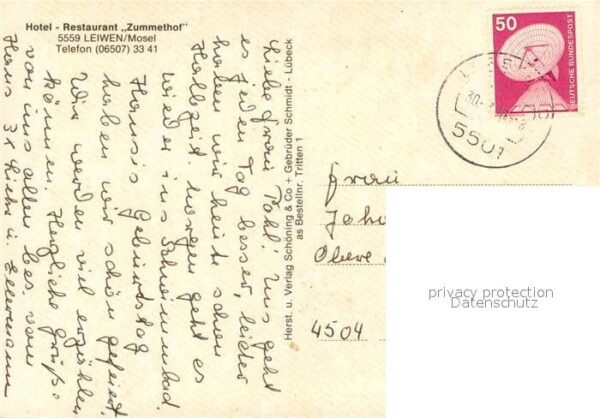 Hotel - Restaurant „Zummethof"
5559 LEIWEN/Mosel
Telefon (06507) 33 41
Liebe Frau Pohl! Uns geht
es jeden Tag besser, leider
haben wir heute schon
Halbzeit. Morgen geht es
wieder ins Schwimmbad.
Hansis Geburtstag
haben wir schön gefeiert.
Wir werden viel erzählen
können. Herzliche Grüße
von uns allen bes. von
Hans
Herst. u. Verlag Schöning & Co + Gebrüder Schmidt - Lübeck
as Bestellnr. Tritten 1
50
DEUTSCHE BUNDESPOST
30.
5501
Frau
Joh
Obere
4504
privacy protection
Datenschutz